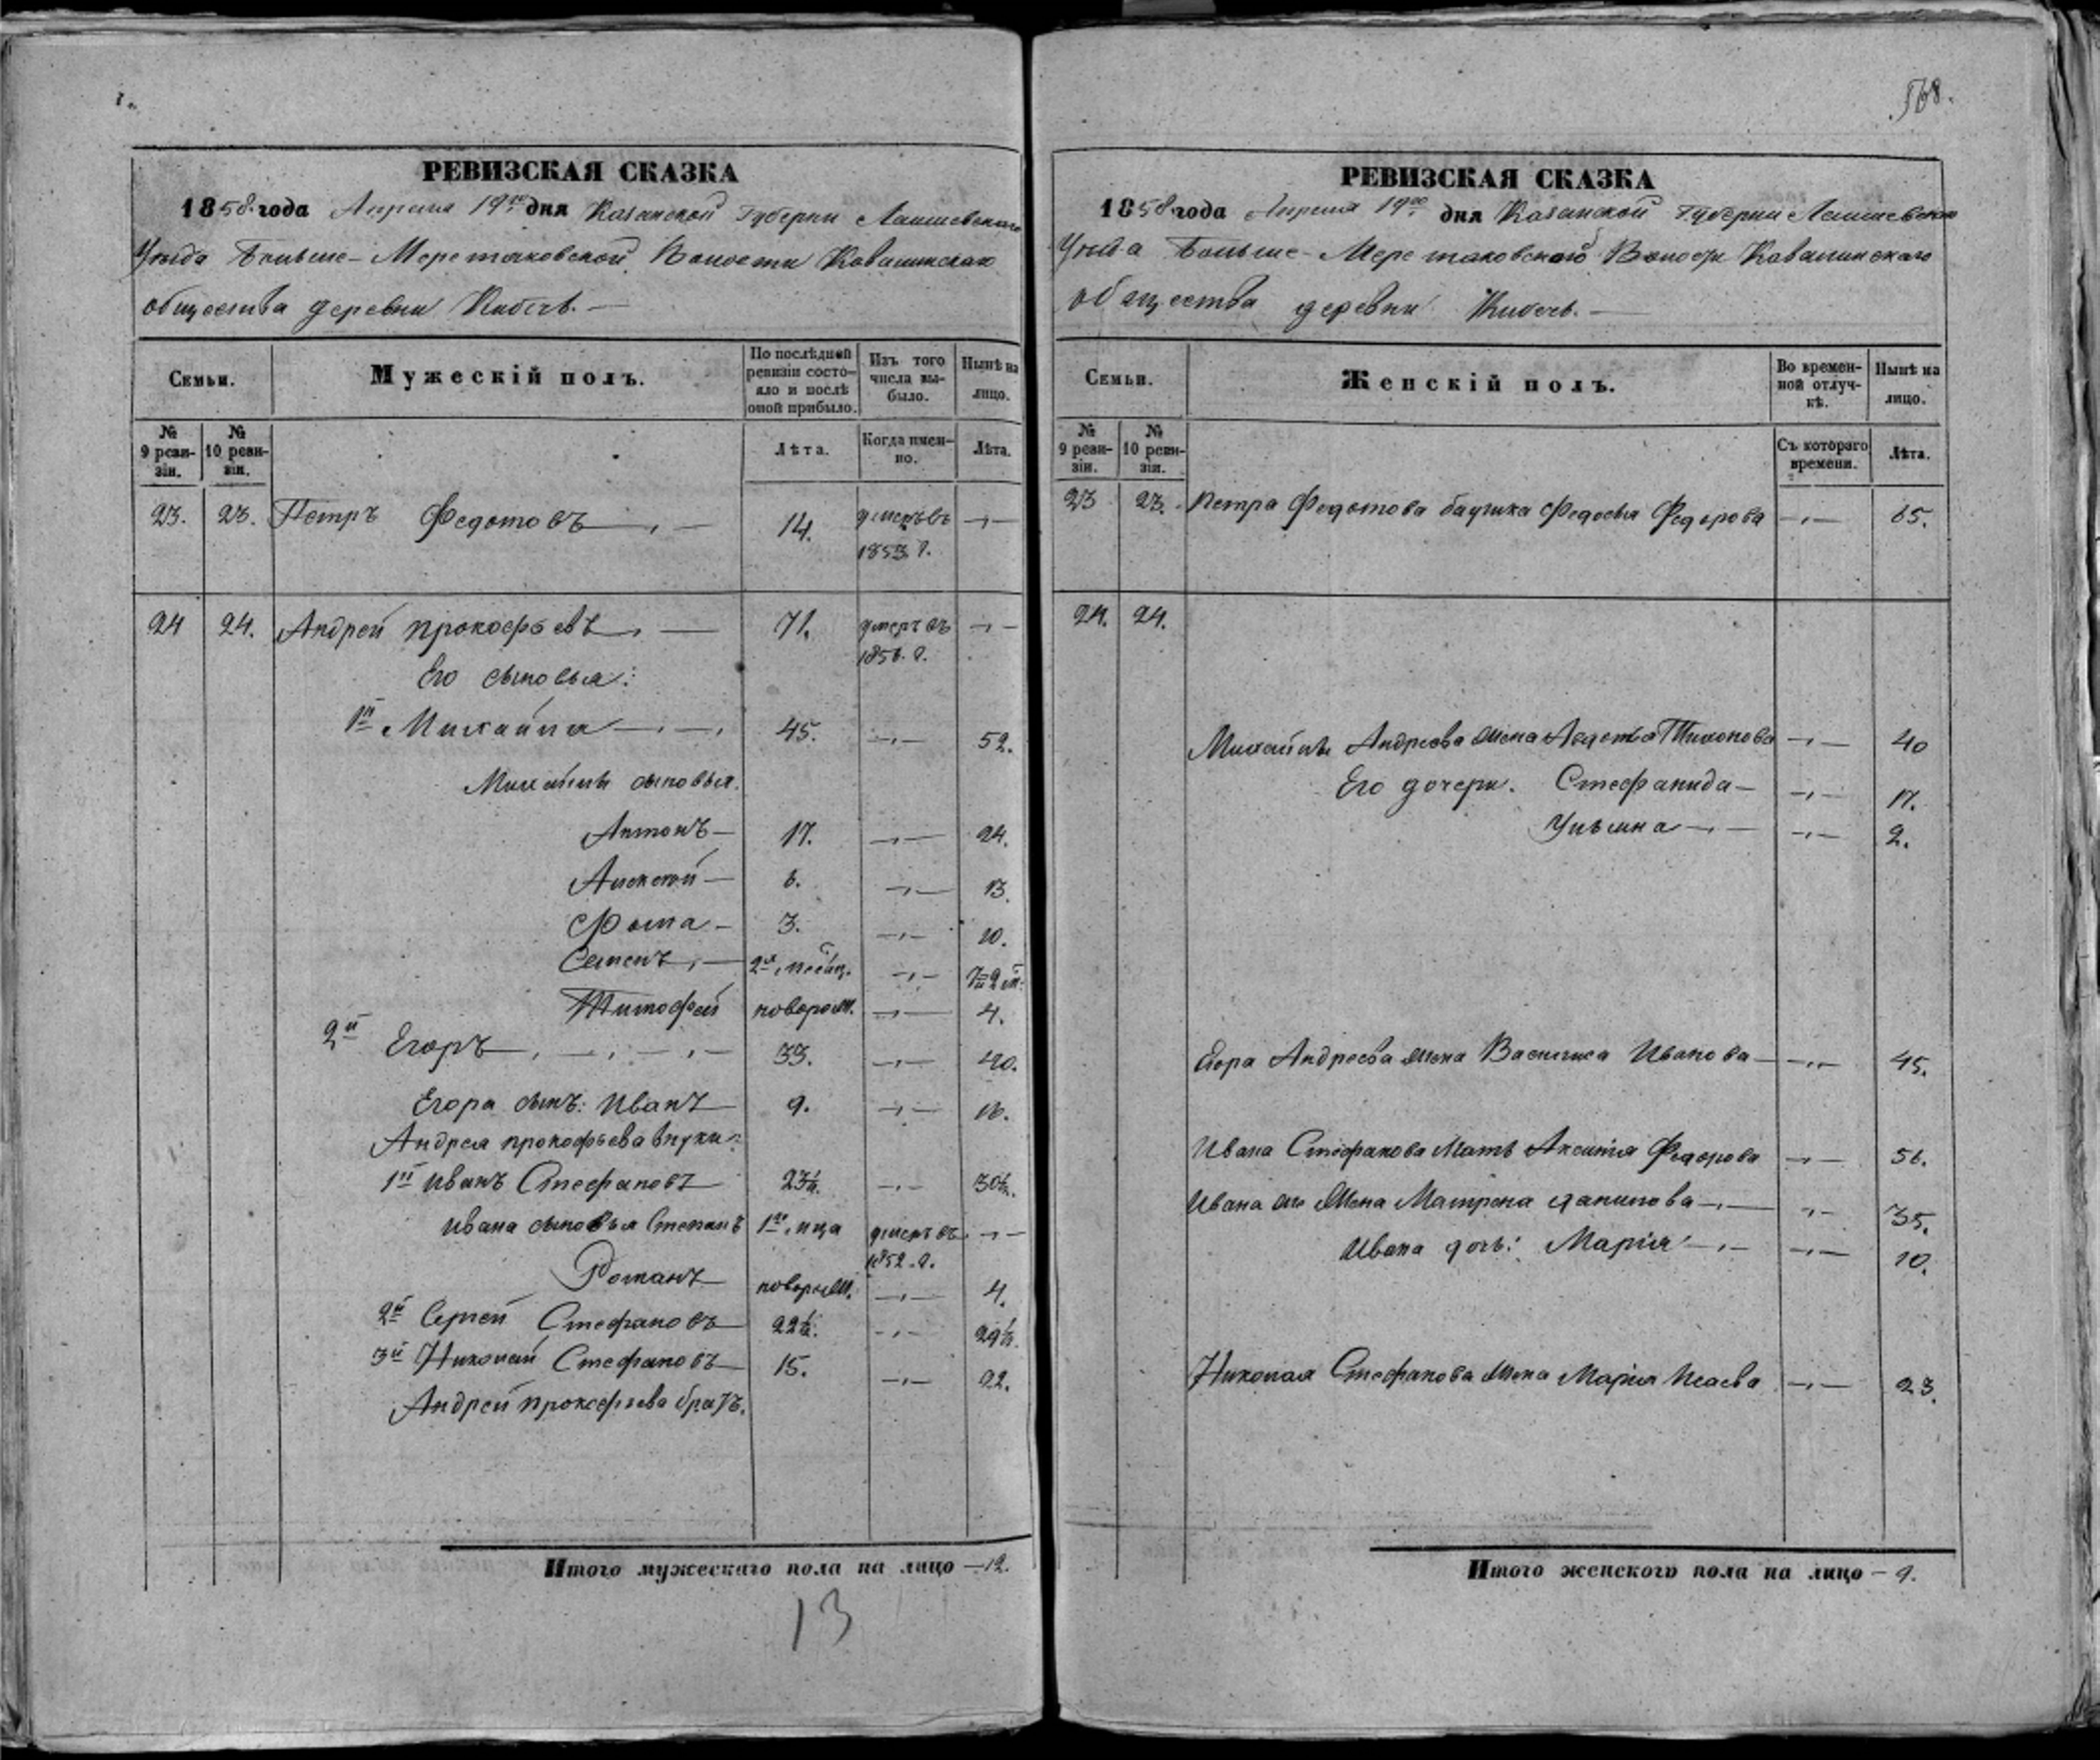 568.
РЕВИЗСКАЯ СКАЗКА
1858 года Апреля 19го дня Казанской Губерни Лаишевскаго
Уѣзда Больше-Меретяковской Волости Кавалинскаго
общества деревни Кибечь.
Семьи. Мужескій полъ. По послѣдней ревизіи состояло и послѣ оной прибыло. Изъ того числа выбыло. Нынѣ на лицо.
№ 9 ревизіи. № 10 ревизіи. Лѣта. Когда именно. Лѣта.
23. 23. Петръ Федотовъ 14. умеръ въ 1853 г.
24 24. Андрей Прокофьевъ 71. умеръ въ 1856. г.
Его сыновья:
1й Михайла 45. 52.
Михайлы сыновья.
Антонъ 17. 24.
Алексѣй 6. 13.
Фома 3. 10.
Семенъ 2х месяц. 7 и 2 м.
Тимофей новорож. 4.
2й Егоръ 33. 40.
Егора сынъ: Иванъ 9. 16.
Андрея Прокофьева внуки:
1й Иванъ Стефановъ 23½. 30½.
Ивана сыновья Степанъ 1го м-ца умеръ въ 1852. г.
Романъ новорож. 4.
2й Сергей Стефановъ 22½. 29½.
3й Николай Стефановъ 15. 22.
Андрей Прокофьева братъ.
Итого мужескаго пола на лицо 12.
13
РЕВИЗСКАЯ СКАЗКА
1858 года Апреля 19го дня Казанской Губерни Лаишевскаго
Уѣзда Больше-Меретяковской Волости Кавалинскаго
общества деревни Кибечь.
Семьи. Женскій полъ. Во временной отлучкѣ. Нынѣ на лицо.
№ 9 ревизіи. № 10 ревизіи. Съ котораго времени. Лѣта.
23 23. Петра Федотова баушка Федосья Федорова 65.
24. 24.
Михайлы Андреева жена Авдотья Тихонова 40
Его дочери. Стефанида 17.
Ульяна 2.
Егора Андреева жена Василиса Иванова 45.
Ивана Стефанова мать Аксинья Федорова 56.
Ивана же жена Матрена Данилова 35.
Ивана дочь: Марія 10.
Николая Стефанова жена Марія Исаева 23.
Итого женского пола на лицо 9.